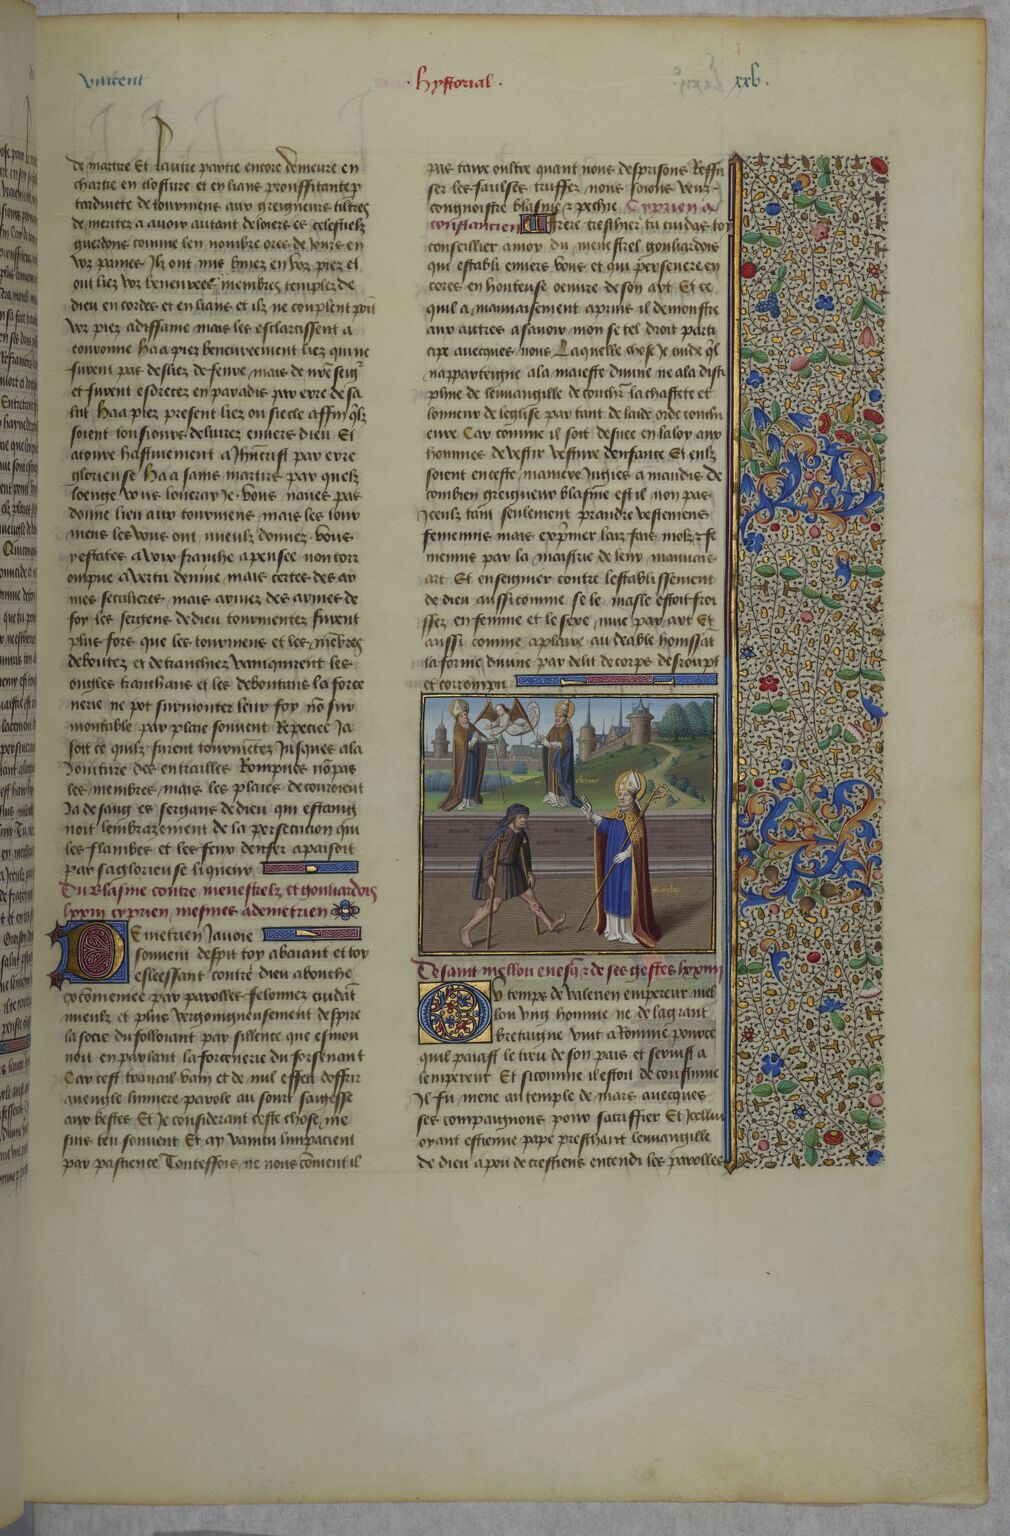 Vincent
hystorial
xxv.
de martire Et lautre partie encore demeure en
chartre en closture et en lians prouffitante p
traduicte de tourmens aux greigneurs tiltres
de meriter a avoir autant de loiers es celestielz
guerdons comme len nombre ores de jours en
voz paines Ilz ont mis en voz piez et
ont liez voz beneurees membres temples de
dieu en cordes et en lians et ilz ne couplent point
voz piez a diffame mais les esclarcissent a
couronne haa piez beneureement liez qui ne
furent pas desliez de fevre mais de nostre seigneur
et furent esdrecez en paradis par erre de sa
lut haa piez present liez ou siecle affin quilz
soient tousiours delivrez envers dieu Et
a courre hastivement a Jhucrist par erre
glorieuse haa sains martirs par quelz
loenge vous loueray Je vous naves pas
donne lieu aux tourmens mais les tour
mens les vous ont mieulx donnez vous
y estates a voix franche a pensee non corr
ompue a vertu devine mais certes des ar
mes seculieres mais armez des armes de
foy les sergens de dieu tourmentez furent
plus fors que les tourmens et les membres
deboutez et detranchiez vainquirent les
ongles tranchans et les deboutans la force
nerie ne pot surmonter leur foy non sur
montable par plaie souvent Repetee Ja
soit ce quilz furent tourmentez jusques a la
Jointure des entrailles Rompues non pas
les membres mais les plaies decouroient
Ja de sang es sergans de dieu qui estaing
noit lembrazement de la persecution qui
les flambes et les feux denfer apaisoit
par sa glorieuse liqueur
Du blasme contre menestrelz et gouliardois
lxxiii cyprien mesmes a demetrien
Demetrien Javoie
souvent despit toy abaiant et toy
esleessant contre dieu a bouche
par paroles felonnes cuidant
mieulx et plus vergongneusement despire
la sotie du folloiant par sillence que esmou
voir en parlant la forcenerie du forsenant
Car cest travail vain et de nul effect doffrir
aveugle lumiere parole au sourt sagesse
aux bestes Et Je considerant ceste chose me
suis teu souvent Et ay vaincu limpacient
par pascience Touteffois ne nous convient il
pas taire oultre quant nous desprisons Reffu
ser les faulses truffes nous soions veuz
congnoistre blasme et pechie Cyprien a
constancien Frere treschier tu cuidas toy
conseillier a moy du menestrel gouliardois
qui establi envers vous et qui persevere en
cores en honteuse oeuvre de son art Et ce
quil a mauvaisement apris il demonstre
aux autres a savoir mon se tel droit parti
cipe avecques nous Laquelle chose Je cuide quil
nappartiegne a la maieste divine ne a la disci
pline de leuvangille de touchir la chastete et
lonneur de leglise par tant de laide orde touche
eure Car comme il soit defuee en la loy aux
hommes de vestir vesture de nfance Et eulz
soient en ceste maniere Jugies a maudis de
combien greigneur blasme est il non pas
Iceulz tant seulement prandre vestemens
femenins mais exprimer laiz fais molz et fe
menins par la maistrie de leur mauvais
art Et enseignier contre lestablissement
de dieu aussi comme se le masle estoit froi
ssez en femme et le sexe mue par art Et
aussi comme a plaire au deable honissat
la forme divine par delit de corps desroupt
et corrompu
estienne
s. melon
De saint mellon evesque et de ses gestes lxxiiii
Ou temps de valerien empereur mel
lon ung homme ne de la grant
bretaigne vint a Romme pource
quil paiast le treu de son pais et servist a
lempereur Et si comme il estoit de coustume
Il fu mene au temple de mars avecques
ses compaignons pour sacriffier Et Icellui
oyant estienne pape preschant leuvangille
de dieu a pou de crestiens entendi les paroles